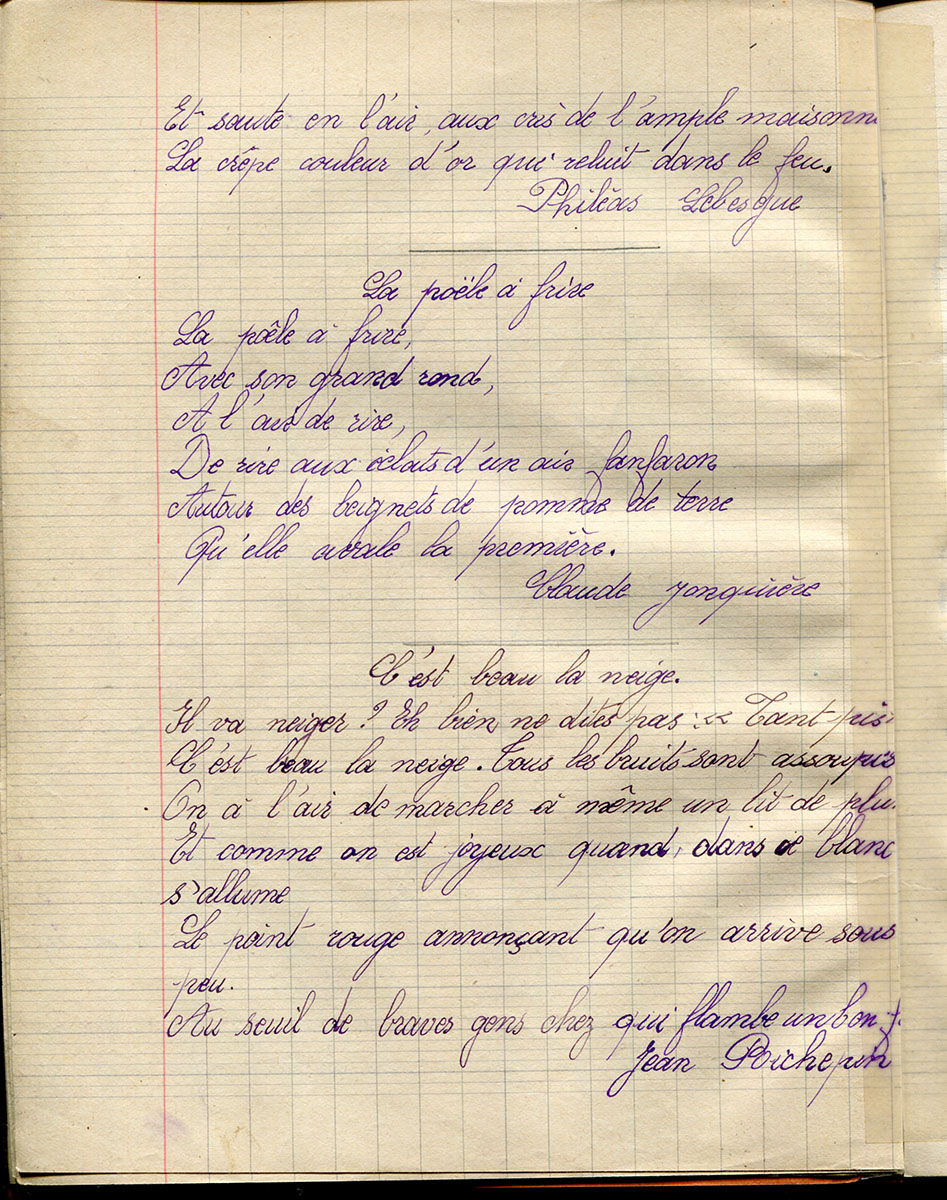 Et saute en l'air, aux cris de l'ample maisonn
La crêpe couleur d'or qui reluit dans le feu.
Philéas Lebesgue
La poële à frire
La pôele à frire,
Avec son grand rond,
A l'air de rire,
De rire aux éclats d'un air fanfaron
Autour des beignets de pomme de terre
Qu'elle avale la première.
Claude Jonquière
C'est beau la neige.
Il va neiger ? Eh bien, ne dites pas : « Tant pis
C'est beau la neige. Tous les bruits sont assoupis
On à l'air de marcher à même un lit de plu
Et comme on est joyeux quand, dans ce blanc
s'allume
Le point rouge annonçant qu'on arrive sous
peu.
Au seuil de braves gens chez qui flambe un bon f
Jean Roichepin